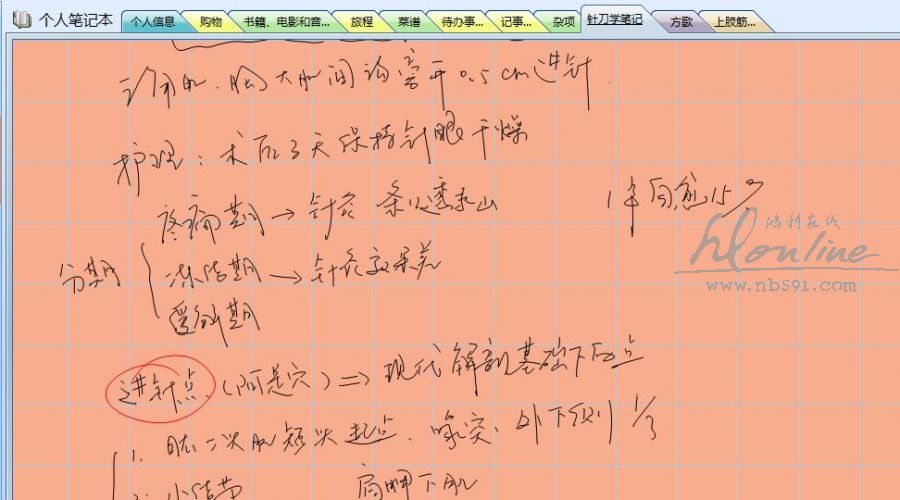 个人笔记本 个人信息 购物 书籍、电影和音... 旅程 菜谱 待办事... 记事... 杂项 针刀学笔记 方歌 上肢筋...
大肌间沟旁开0.5cm进针.
护理:术后3天保持针眼干燥
疼痛期→针灸 条口透承山 1年自愈15
分期 冻结期→针灸效果差
鸿利在线
hlonline
www.nb591.com
期
进针点.(阿是穴)=>现代解剖基础下的点
1.肱二头肌短头起点、喙突、外下缘1/3
2. 小结节 肩胛下肌